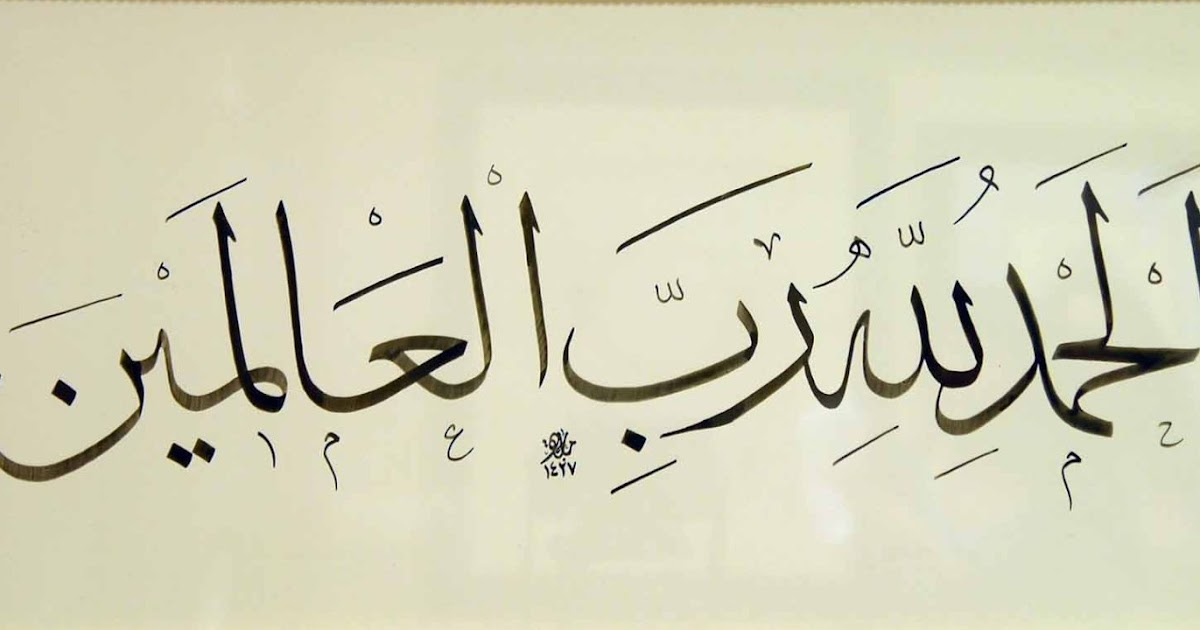 اَلْحَمْدُ لِلَّهِ رَبِّ الْعَالَمِيْنَ
١٤٢٧